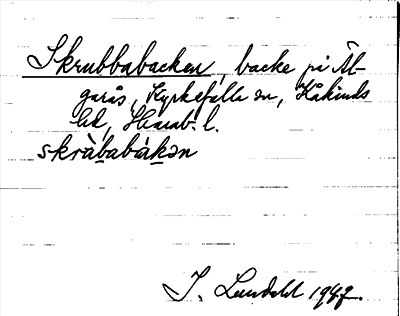 Skrubbabacken, backe på Äl-
garås, Kyrkefalla sn, Kåkinds
hd, Skarab. l.
skràbabàkən
J. Lundahl 1947.